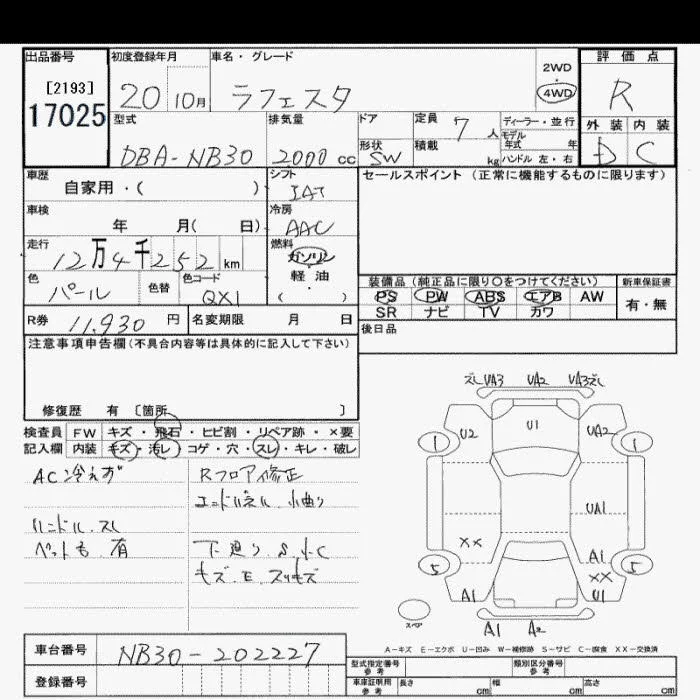 出品番号 初度登録年月 車名・グレード 評価点
[2193]
17025
20 10月 ラフェスタ 2WD・4WD R
型式 排気量 ドア 定員 7人 ディーラー・並行 外装 内装
DBA-NB30 2000cc 形状 SW 積載 kg モデル年式 年 ハンドル 左・右 D C
車歴 シフト セールスポイント (正常に機能するものに限ります)
自家用・( ) IAT
車検 冷房
年 月( 日) AAC
走行 燃料
12万4千252km ガソリン
色 色替 色コード 軽・油
パール QX1 ( ・ )
装備品(純正品に限り○をつけてください) 新車保証書
PS PW ABS エアB AW 有・無
SR ナビ TV カワ
R券 11,930円 名変期限 月 日 後日品
注意事項申告欄(不具合内容等は具体的に記入して下さい)
修復歴 有 〔箇所 〕
検査員 FW キズ・飛石・ヒビ割・リペア跡・×要
記入欄 内装 キズ・汚レ・コゲ・穴・スレ・キレ・破レ
AC冷えず Rフロア修正
エンドパネル.小曲り
ハンドル.スレ
ペット毛.有 下廻り.S.小C
キズ.E.スリキズ
ズレUA3 UA2 UA3ズレ
U2 U1 UA2
1 1
UA1
XX A1
5 XX 5
A1 U1
スペア A1 A2
A-キズ E-エクボ U-凹み W-補修跡 S-サビ C-腐食 XX-交換済
車台番号 NB30-202227
登録番号
型式指定番号 参考 類別区分番号 参考
車庫証明用 参考 長さ cm 幅 cm 高さ cm